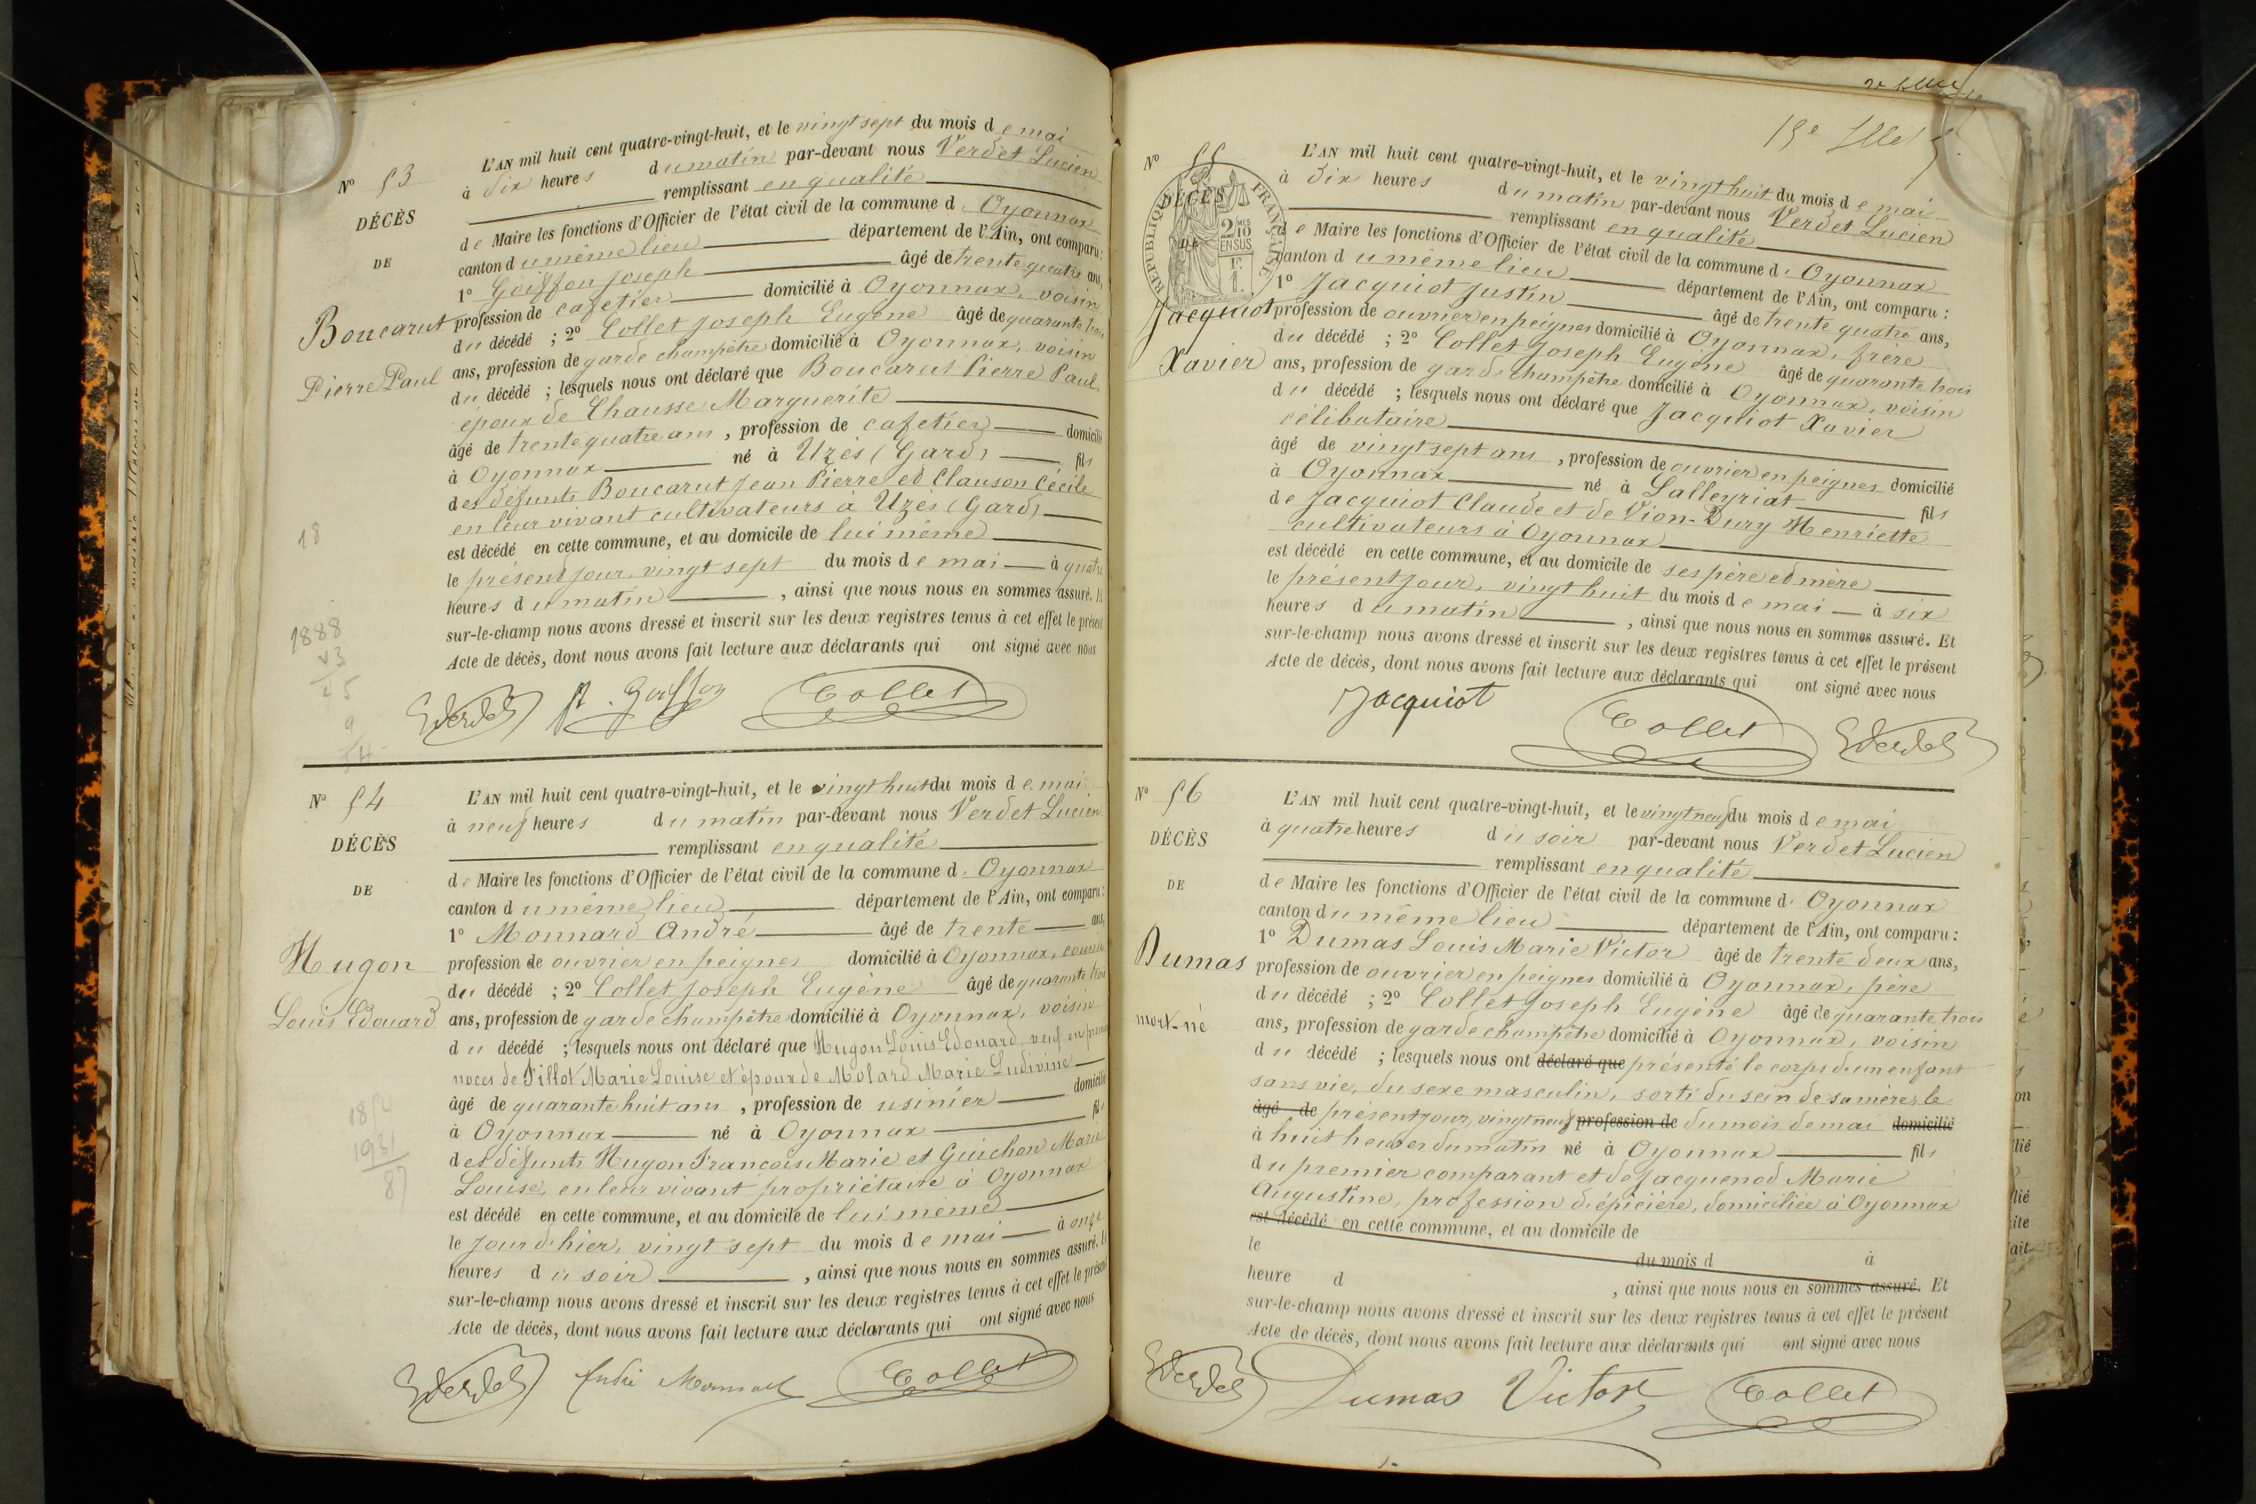 N° 53
DÉCÈS
DE
Boucarut
Pierre Paul
L'AN mil huit cent quatre-vingt-huit, et le vingt sept du mois de mai
à dix heures du matin par-devant nous Verdet Lucien
remplissant en qualité
de Maire les fonctions d'Officier de l'état civil de la commune d'Oyonnax
canton du même lieu département de l'Ain, ont comparu :
1° Goiffon Joseph âgé de trente quatre ans,
profession de cafetier domicilié à Oyonnax, voisin
du décédé ; 2° Collet Joseph Eugène âgé de quarante trois
ans, profession de garde champêtre domicilié à Oyonnax, voisin
du décédé ; lesquels nous ont déclaré que Boucarut Pierre Paul,
époux de Chausse Marguerite
âgé de trente quatre ans, profession de cafetier domicilié
à Oyonnax né à Uzès (Gard) fils
des défunts Boucarut Jean Pierre et Clauson Cécile
en leur vivant cultivateurs à Uzès (Gard)
est décédé en cette commune, et au domicile de lui même
le présent jour, vingt sept du mois de mai à quatre
heures du matin, ainsi que nous nous en sommes assuré. Et
sur-le-champ nous avons dressé et inscrit sur les deux registres tenus à cet effet le présent
Acte de décès, dont nous avons fait lecture aux déclarants qui ont signé avec nous
Verdet Goiffon Collet
18
1888
N° 54
DÉCÈS
DE
Hugon
Louis Edouard
L'AN mil huit cent quatre-vingt-huit, et le vingt huit du mois de mai
à neuf heures du matin par-devant nous Verdet Lucien
remplissant en qualité
de Maire les fonctions d'Officier de l'état civil de la commune d'Oyonnax
canton du même lieu département de l'Ain, ont comparu :
1° Monnard André âgé de trente ans,
profession de ouvrier en peignes domicilié à Oyonnax, cousin
du décédé ; 2° Collet Joseph Eugène âgé de quarante trois
ans, profession de garde champêtre domicilié à Oyonnax, voisin
du décédé ; lesquels nous ont déclaré que Hugon Louis Edouard, veuf en
noces de Tillot Marie Louise et époux de Molard Marie Ludivine
âgé de quarante huit ans, profession de usinier domicilié
à Oyonnax né à Oyonnax fils
des défunts Hugon François Marie et Guichon Marie
Louise, en leur vivant propriétaire à Oyonnax
est décédé en cette commune, et au domicile de lui même
le jour d'hier, vingt sept du mois de mai à onze
heures du soir, ainsi que nous nous en sommes assuré. Et
sur-le-champ nous avons dressé et inscrit sur les deux registres tenus à cet effet le présent
Acte de décès, dont nous avons fait lecture aux déclarants qui ont signé avec nous
Verdet André Monnard Collet
1931
87
N° 55
DÉCÈS
DE
RÉPUBLIQUE FRANÇAISE
Jacquiot
Xavier
L'AN mil huit cent quatre-vingt-huit, et le vingt huit du mois de mai
à dix heures du matin par-devant nous Verdet Lucien
remplissant en qualité
de Maire les fonctions d'Officier de l'état civil de la commune d'Oyonnax
canton du même lieu département de l'Ain, ont comparu :
1° Jacquiot Justin âgé de trente quatre ans,
profession de ouvrier en peignes domicilié à Oyonnax, frère
du décédé ; 2° Collet Joseph Eugène âgé de quarante trois
ans, profession de garde champêtre domicilié à Oyonnax, voisin
du décédé ; lesquels nous ont déclaré que Jacquiot Xavier
célibataire
âgé de vingt sept ans, profession de ouvrier en peignes domicilié
à Oyonnax né à Lalleyriat fils
de Jacquiot Claude et de Vion-Dury Henriette
cultivateurs à Oyonnax
est décédé en cette commune, et au domicile de ses père et mère
le présent jour, vingt huit du mois de mai à six
heures du matin, ainsi que nous nous en sommes assuré. Et
sur-le-champ nous avons dressé et inscrit sur les deux registres tenus à cet effet le présent
Acte de décès, dont nous avons fait lecture aux déclarants qui ont signé avec nous
Jacquiot Collet Verdet
N° 56
DÉCÈS
DE
Dumas
mort-né
L'AN mil huit cent quatre-vingt-huit, et le vingt neuf du mois de mai
à quatre heures du soir par-devant nous Verdet Lucien
remplissant en qualité
de Maire les fonctions d'Officier de l'état civil de la commune d'Oyonnax
canton du même lieu département de l'Ain, ont comparu :
1° Dumas Louis Marie Victor âgé de trente deux ans,
profession de ouvrier en peignes domicilié à Oyonnax, père
du décédé ; 2° Collet Joseph Eugène âgé de quarante trois
ans, profession de garde champêtre domicilié à Oyonnax, voisin
du décédé ; lesquels nous ont déclaré que présenté le corps d'un enfant
sans vie, du sexe masculin, sorti du sein de sa mère, le
âgé de présent jour, vingt neuf profession de du mois de mai domicilié
à huit heures du matin né à Oyonnax fils
du premier comparant et de Jacquenod Marie
Augustine, profession d'épicière, domiciliée à Oyonnax
est décédé en cette commune, et au domicile de
le du mois d à
heure d , ainsi que nous nous en sommes assuré. Et
sur-le-champ nous avons dressé et inscrit sur les deux registres tenus à cet effet le présent
Acte de décès, dont nous avons fait lecture aux déclarants qui ont signé avec nous
Verdet Dumas Victor Collet